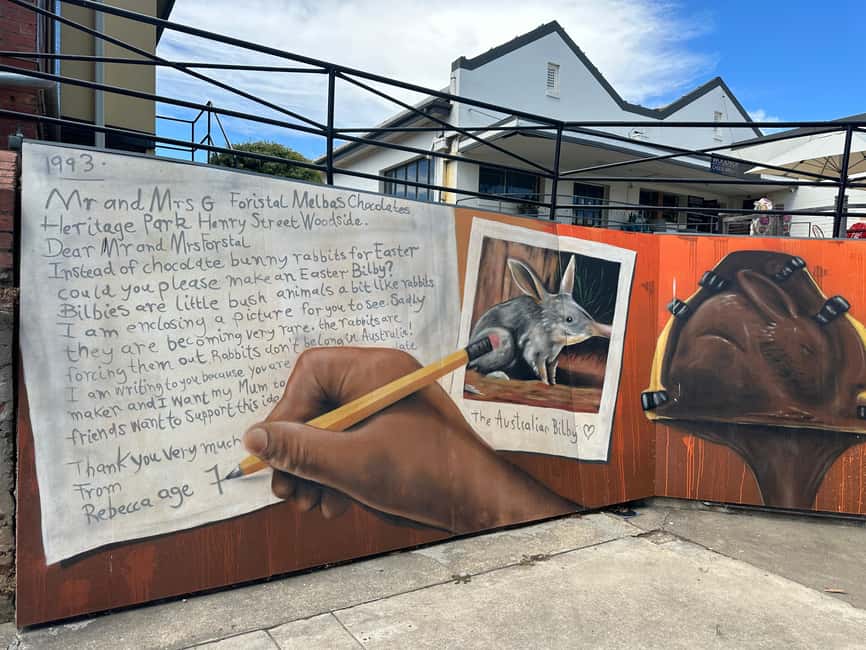 1993.
Mr and Mrs G Foristal Melbas Chocolates
Heritage Park Henry Street Woodside.
Dear Mr and Mrs Forstal
Instead of chocolate bunny rabbits for Easter
could you please make an Easter Bilby?
Bilbies are little bush animals a bit like rabbits
I am enclosing a picture for you to see. Sadly
they are becoming very rare. the rabbits are
forcing them out Rabbits don't belong in Australia!
I am writing to you because you are
maker and I want my Mum to
friends want to Support this
Thank you very much
From
Rebecca age 7
The Australian Bilby ♡